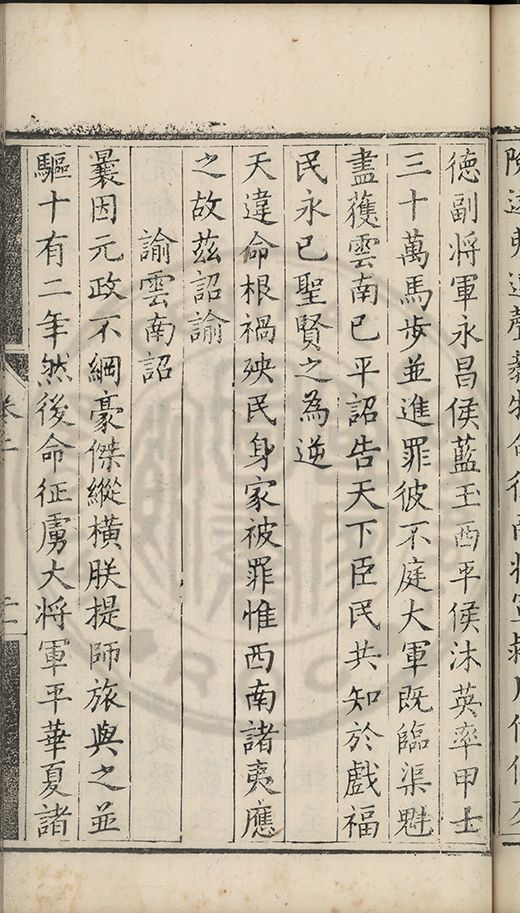 德副將軍永昌侯藍玉西平侯沐英率甲士
三十萬馬步並進罪彼不庭大軍既臨渠魁
盡獲雲南已平詔告天下臣民共知於戲福
民永已聖賢之為逆
天違命根禍殃民身家被罪惟西南諸夷應
之故茲詔諭
諭雲南詔
曩因元政不綱豪傑縱橫朕提師旅與之並
驅十有二年然後命征虜大將軍平華夏諸
卷二